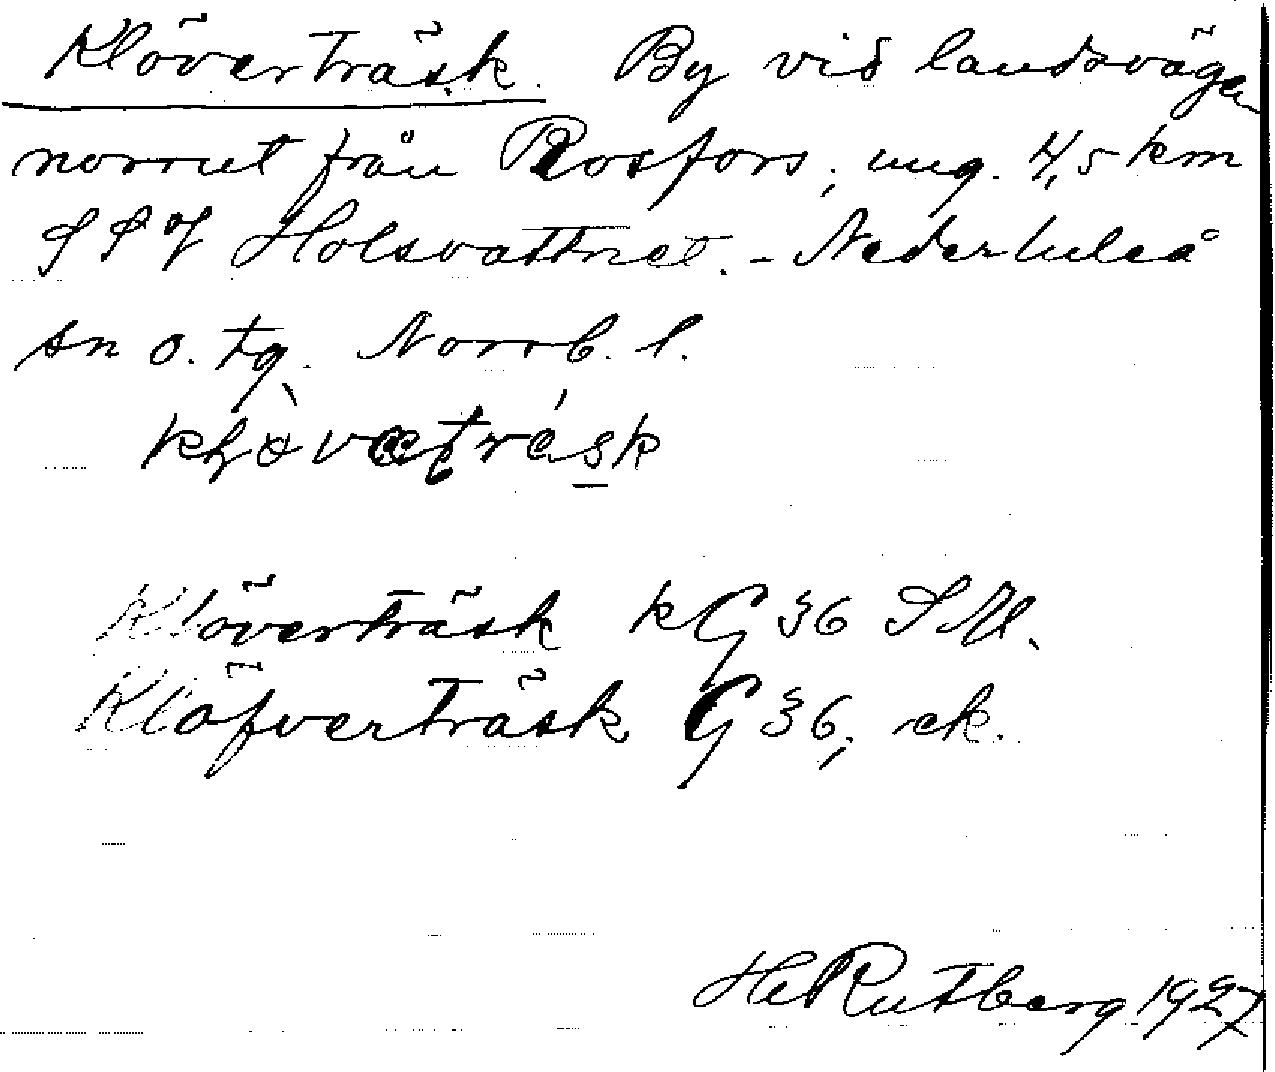 Klöverträsk. By vid landsvägen
norrut från Rosfors, ung. 4,5 km
SSV Holsvattnet. - Nederluleå
sn o. tg. Norrb. l.
Klöverträsk kG 36 SM.
Klöfverträsk G 36, ek.
He Rutberg 1927